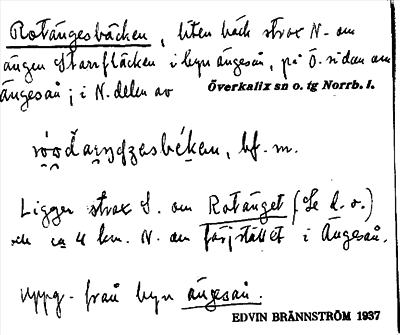 Rotängesbäcken, liten bäck strax N. om
ängen Starrfläcken i byn ängeså, på Ö. sidan om
ängesån; i N. delen av Överkalix sn o. tg Norrb. l.
bf. m.
Ligger strax S. om Rotänget (Se d. o.)
och ca 4 km. N. om färjstället i Ängeså.
Uppg. från byn ängeså.
EDVIN BRÄNNSTRÖM 1937